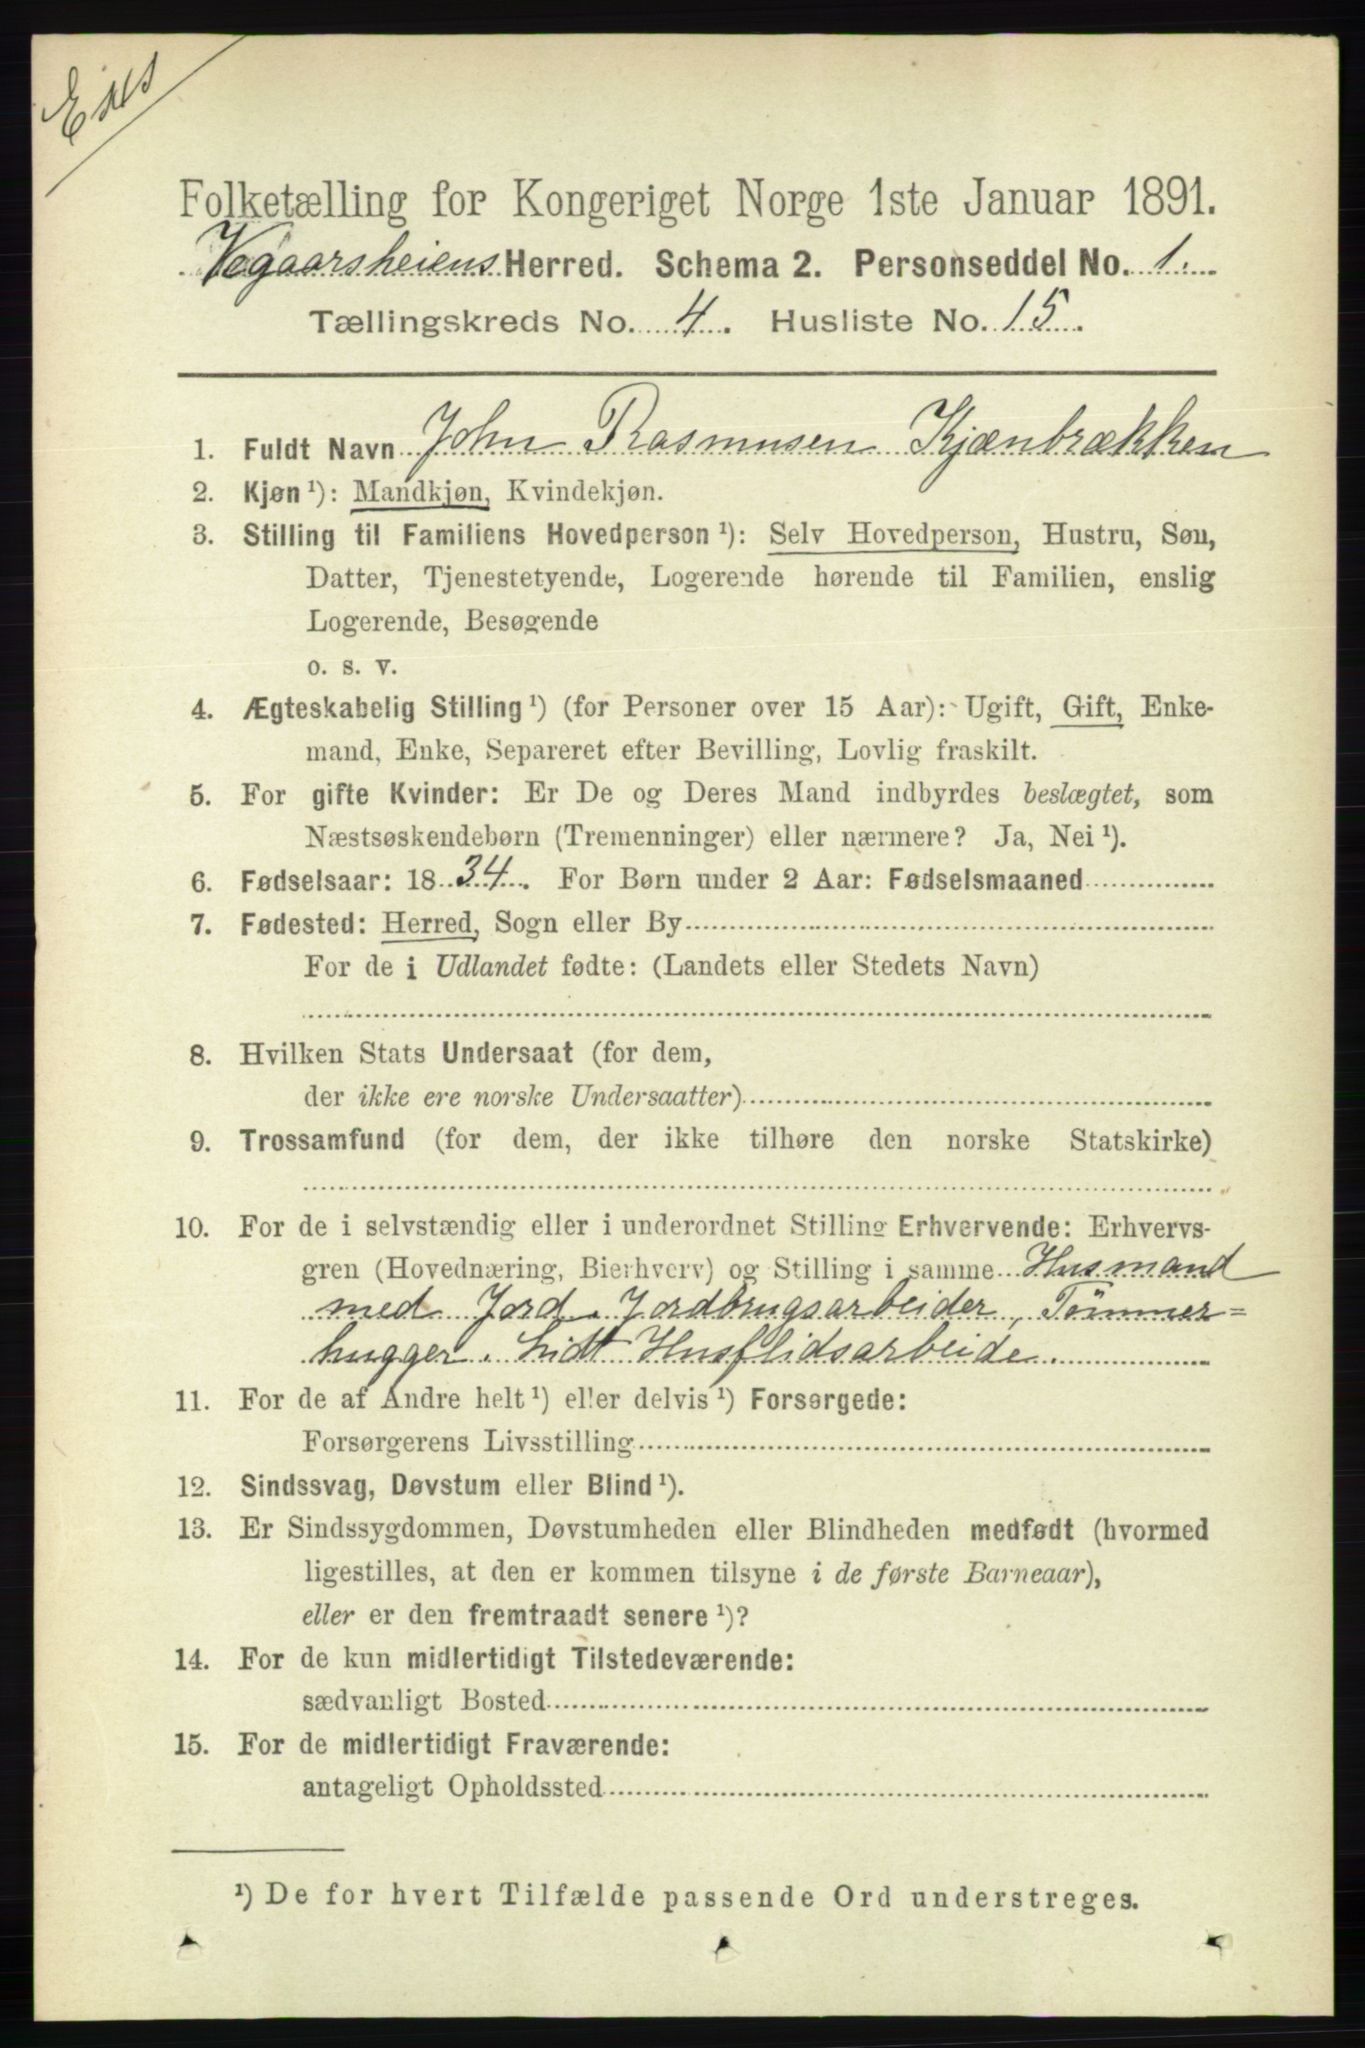 Folketælling for Kongeriget Norge 1ste Januar 1891.
Vegaarsheiens Herred. Schema 2. Personseddel No. 1.
Tællingskreds No. 4. Husliste No. 15.
1. Fuldt Navn John Rasmusen Kjænbrækken
2. Kjøn ¹): Mandkjøn, Kvindekjøn.
3. Stilling til Familiens Hovedperson ¹): Selv Hovedperson, Hustru, Søn,
Datter, Tjenestetyende, Logerende hørende til Familien, enslig
Logerende, Besøgende
o. s. v.
4. Ægteskabelig Stilling ¹) (for Personer over 15 Aar): Ugift, Gift, Enke-
mand, Enke, Separeret efter Bevilling, Lovlig fraskilt.
5. For gifte Kvinder: Er De og Deres Mand indbyrdes beslægtet, som
Næstsøskendebørn (Tremenninger) eller nærmere? Ja, Nei ¹).
6. Fødselsaar: 1834. For Børn under 2 Aar: Fødselsmaaned
7. Fødested: Herred, Sogn eller By
For de i Udlandet fødte: (Landets eller Stedets Navn)
8. Hvilken Stats Undersaat (for dem,
der ikke ere norske Undersaatter)
9. Trossamfund (for dem, der ikke tilhøre den norske Statskirke)
10. For de i selvstændig eller i underordnet Stilling Erhvervende: Erhvervs-
gren (Hovednæring, Bierhverv) og Stilling i samme Husmand
med Jord. Jordbrugsarbeider, Tömmer=
hugger. Lidt Husflidsarbeide.
11. For de af Andre helt ¹) eller delvis ¹) Forsørgede:
Forsørgerens Livsstilling
12. Sindssvag, Døvstum eller Blind ¹).
13. Er Sindssygdommen, Døvstumheden eller Blindheden medfødt (hvormed
ligestilles, at den er kommen tilsyne i de første Barneaar),
eller er den fremtraadt senere ¹)?
14. For de kun midlertidigt Tilstedeværende:
sædvanligt Bosted
15. For de midlertidigt Fraværende:
antageligt Opholdssted
¹) De for hvert Tilfælde passende Ord understreges.